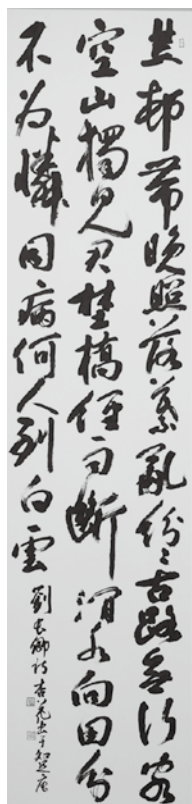 荒邨帶晚照落葉亂紛々古路無行客
空山獨見君埜橋經雨斷澗水向田分
不為憐同病何人到白雲
劉長卿詩